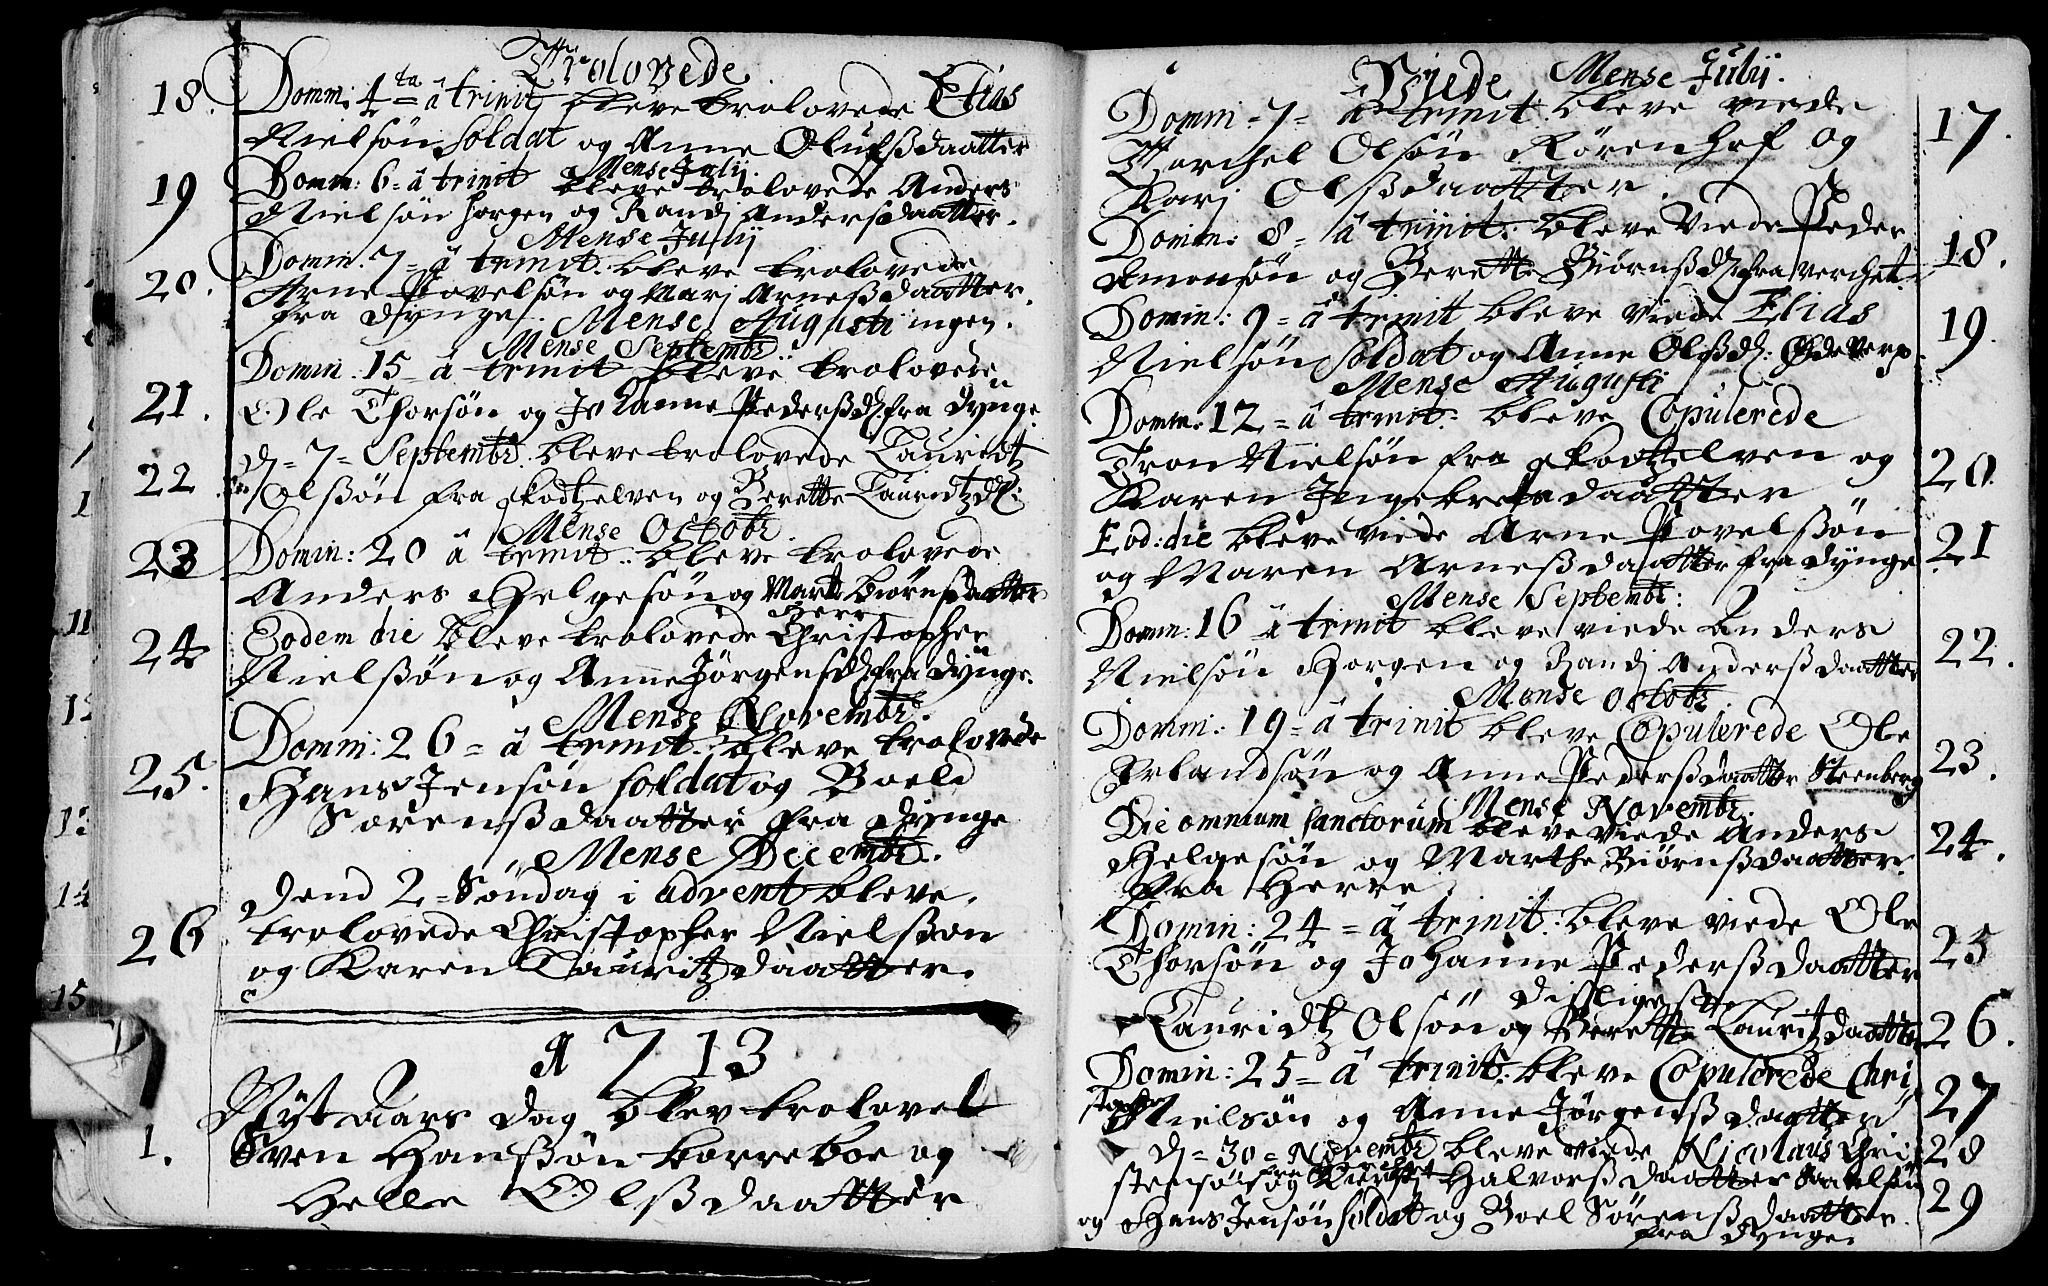 Trolovede
18. Domin: 4ta â trinit bleve trolovede Elias
Nielsøn soldat og Anne Olufsdaatter
Mense Julij.
19 Domin: 6 = â trinit bleve trolovede Anders
Nielsøn Horgen og Randj Andersdaatter.
Mense Julij
20. Domin. 7 = â trinit. bleve trolovede
Arne Povelsøn og Marj Arneßdaatter.
fra Dynge. Mense Augusti ingen.
Mense Septembr.
21. Domin. 15 = â trinit bleve trolovede
Ole Thorsøn og Johanne Pedersdr. fra Dynge.
22 d = 7 = Septembr. bleve trolovede Lauridtz
Olßøn fra Skodtzelven og Berette Lauridtzdr:
Mense Octobr.
23 Domin: 20 â trinit. bleve trolovede
Anders Helgesøn og Marte Biørnsdaatter
Herre
24 Eodem die bleve trolovede Christopher
Nielßøn og Anne Jørgensdr. fra Dynge.
Mense Novembr.
25. Domin: 26 = â trinit. bleve trolovede
Hans Jensøn soldat og Boeld
Sørenßdaatter fra Dynge
Mense Decembr.
Dend 2 = Søndag i advent bleve
26 trolovede Christopher Nielsson
og Karen Lauritzdaatter.
A 1713
Nyt aars dag blev trolovet
1. Sven Hanßøn Borreboe og
Helle Olßdaatter
Viede Mense Julij.
Domin = 7 = â trinit. bleve viede 17.
Torchel Olsøn Rørenhof og
Karj Olßdaatter.
Domin: 8 = â trinit. bleve viede Peder 18.
Amonsøn og Berette Biørnßdr. fra Verchet.
Domin: 9 = â trinit bleve viede Elias 19.
Nielsøn soldat og Anne Olßdr:
Mense Augusti
Domin: 12 = â trinit. bleve Copulerede
Tron Nielsøn fra Skodtzelven og 20.
Karen Ingebretsdaatter
Eod: die bleve viede Arne Povelßøn 21
og Maren Arneßdaatter fra Dynge
Mense Septembr:
Domin: 16 â trinit bleve viede Anders 22.
Nielsøn Horgen og Randj Andersdaatter
Mense Octobr
Domin: 19 = â trinit bleve Copulerede Ole
Erlandsøn og Anne Pederßdaatter Steenberg 23.
Mense Novembr.
Die omnium sanctorum bleve viede Anders 24.
Helgesøn og Marthe Biørnßdaatter.
fra Herre
Domin: 24 = â trinit. bleve viede Ole 25
Thorsøn og Johanne Pederßdaatter
Disligeste
Lauridtz Olsøn og Berette Lauritzdaatter 26.
Domin: 25 = â trinit. bleve Copulerede Chri 27
stopher Nielsøn og Anne Jørgenßdaatter
d = 30 = Novembr bleve viede Nicolaus Chri 28
stensøn og Halvorßdaatter
og Hans Jensøn soldat og Boel Sørenßdaatter. 29
fra Dynge.